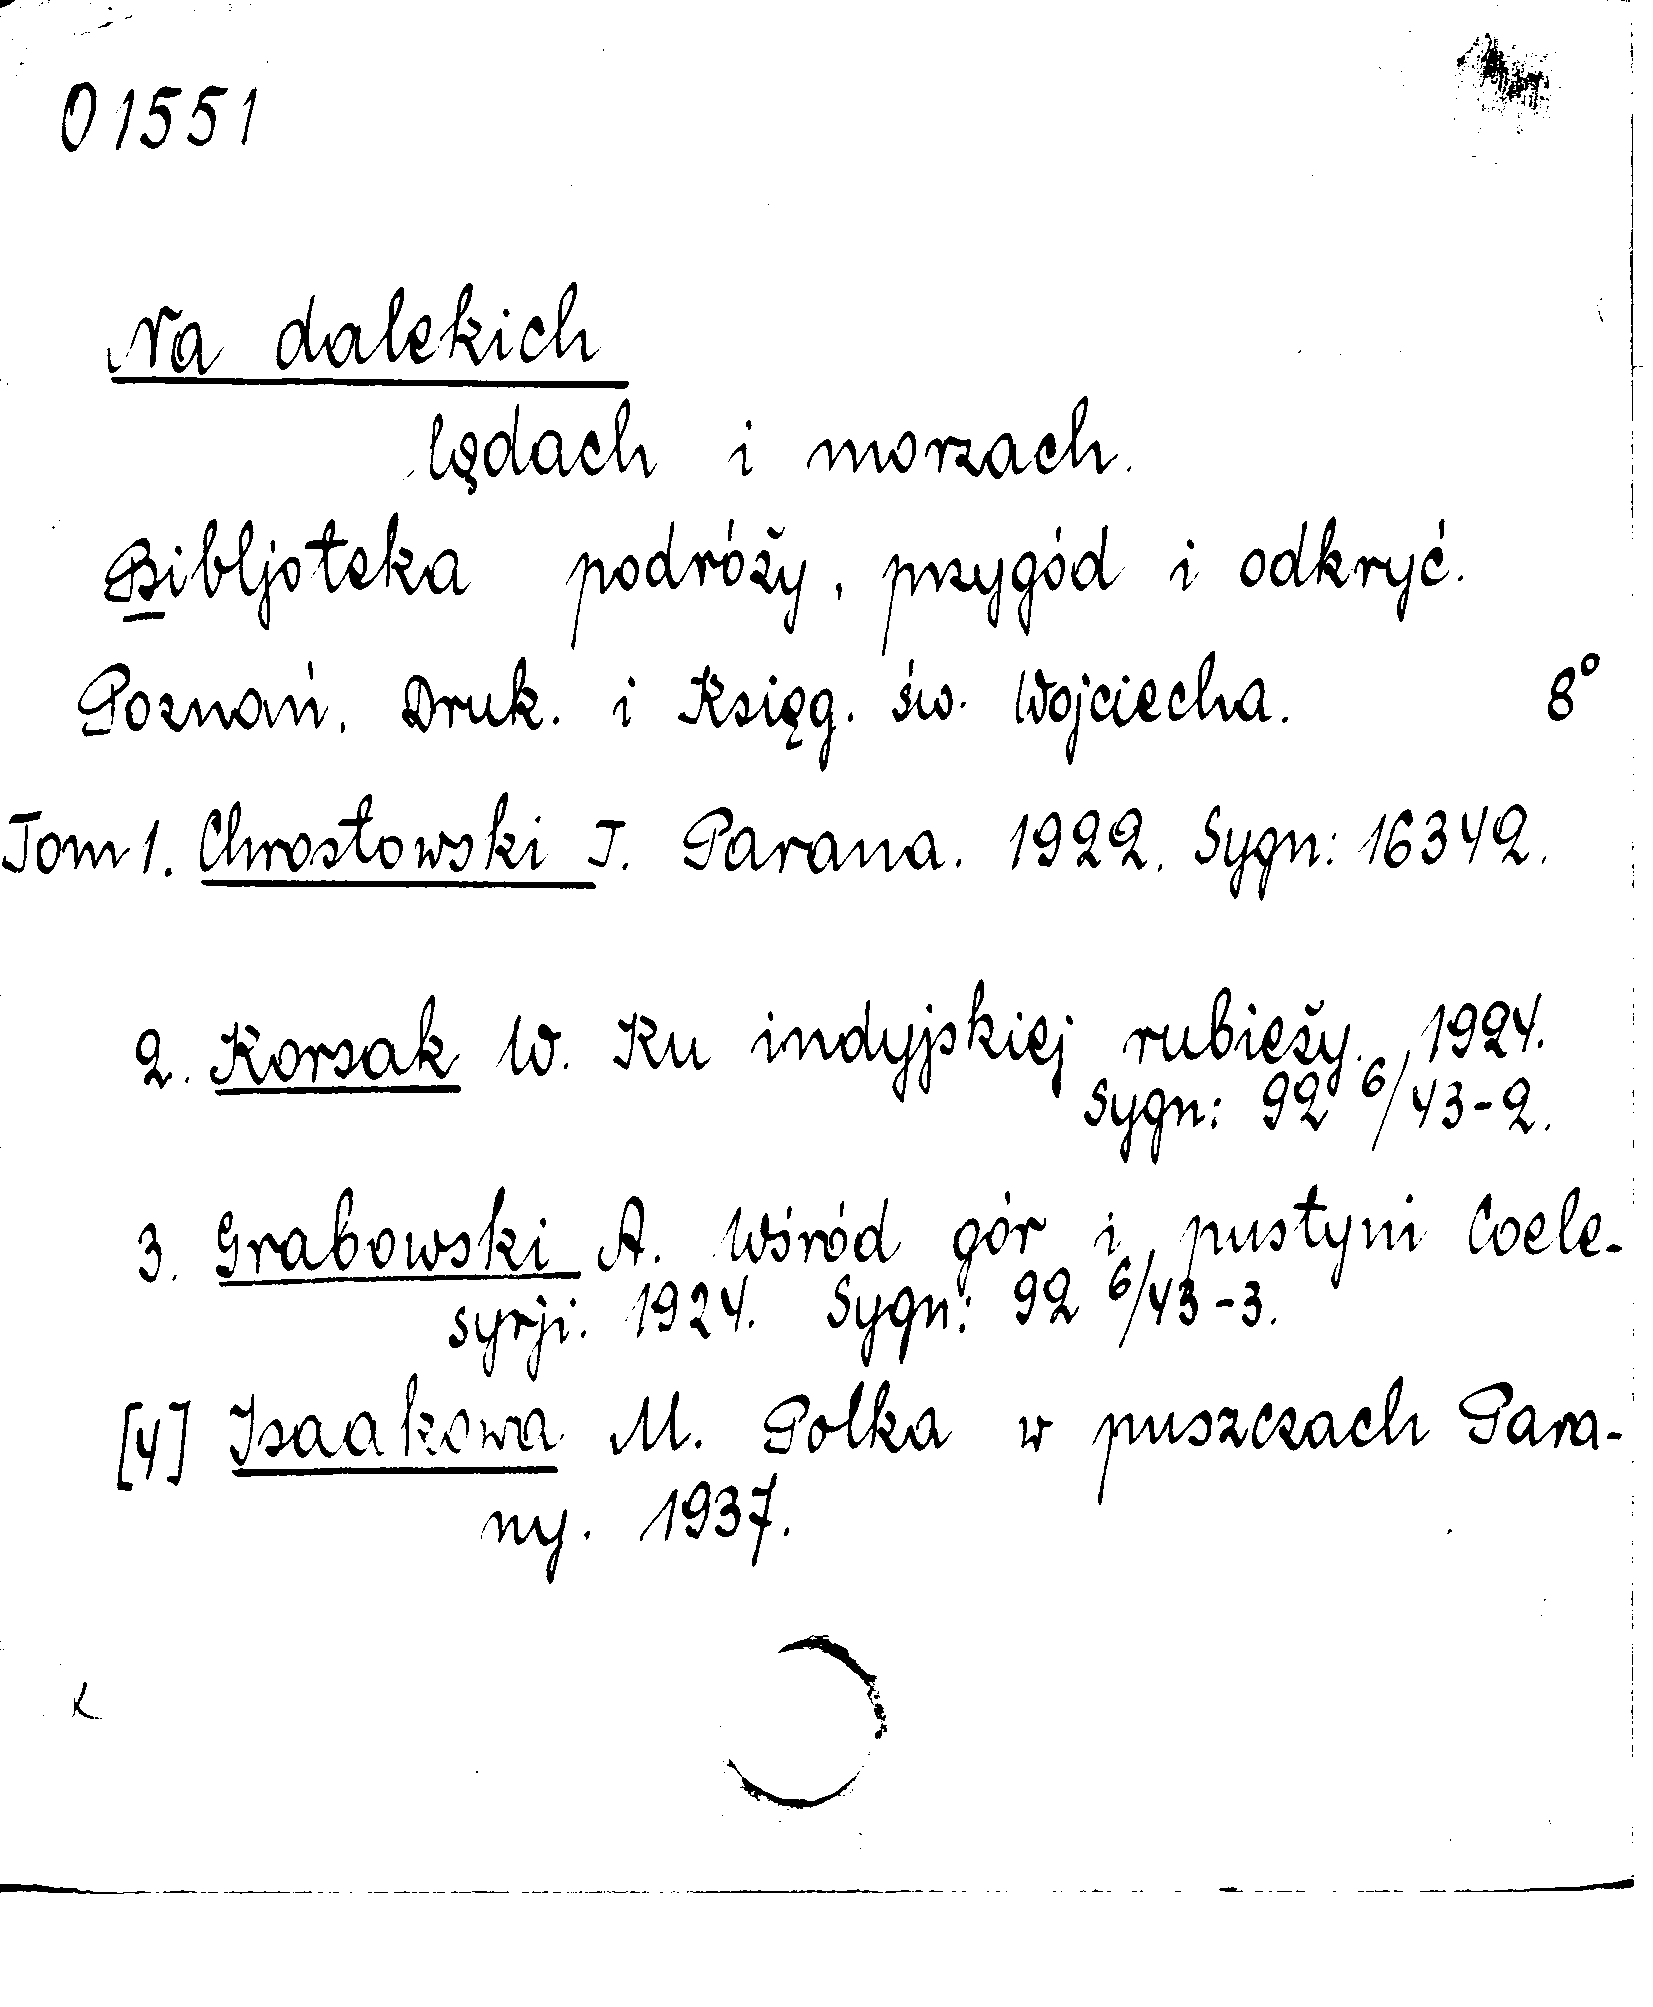 01551
Na dalekich
lądach i morzach.
Bibljoteka podróży, przygód i odkryć.
Poznań. Druk. i Księg. św. Wojciecha. 8°
Tom 1. Chrostowski T. Parana. 1922. Sygn: 16342.
2. Korsak W. Ku indyjskiej rubieży. 1924.
Sygn: 92 6/43-2.
3. Grabowski A. Wśród gór i pustyni Coele-
syrji. 1924. Sygn: 92 6/43-3.
[4] Isaakowa M. Polka w puszczach Para-
ny. 1937.